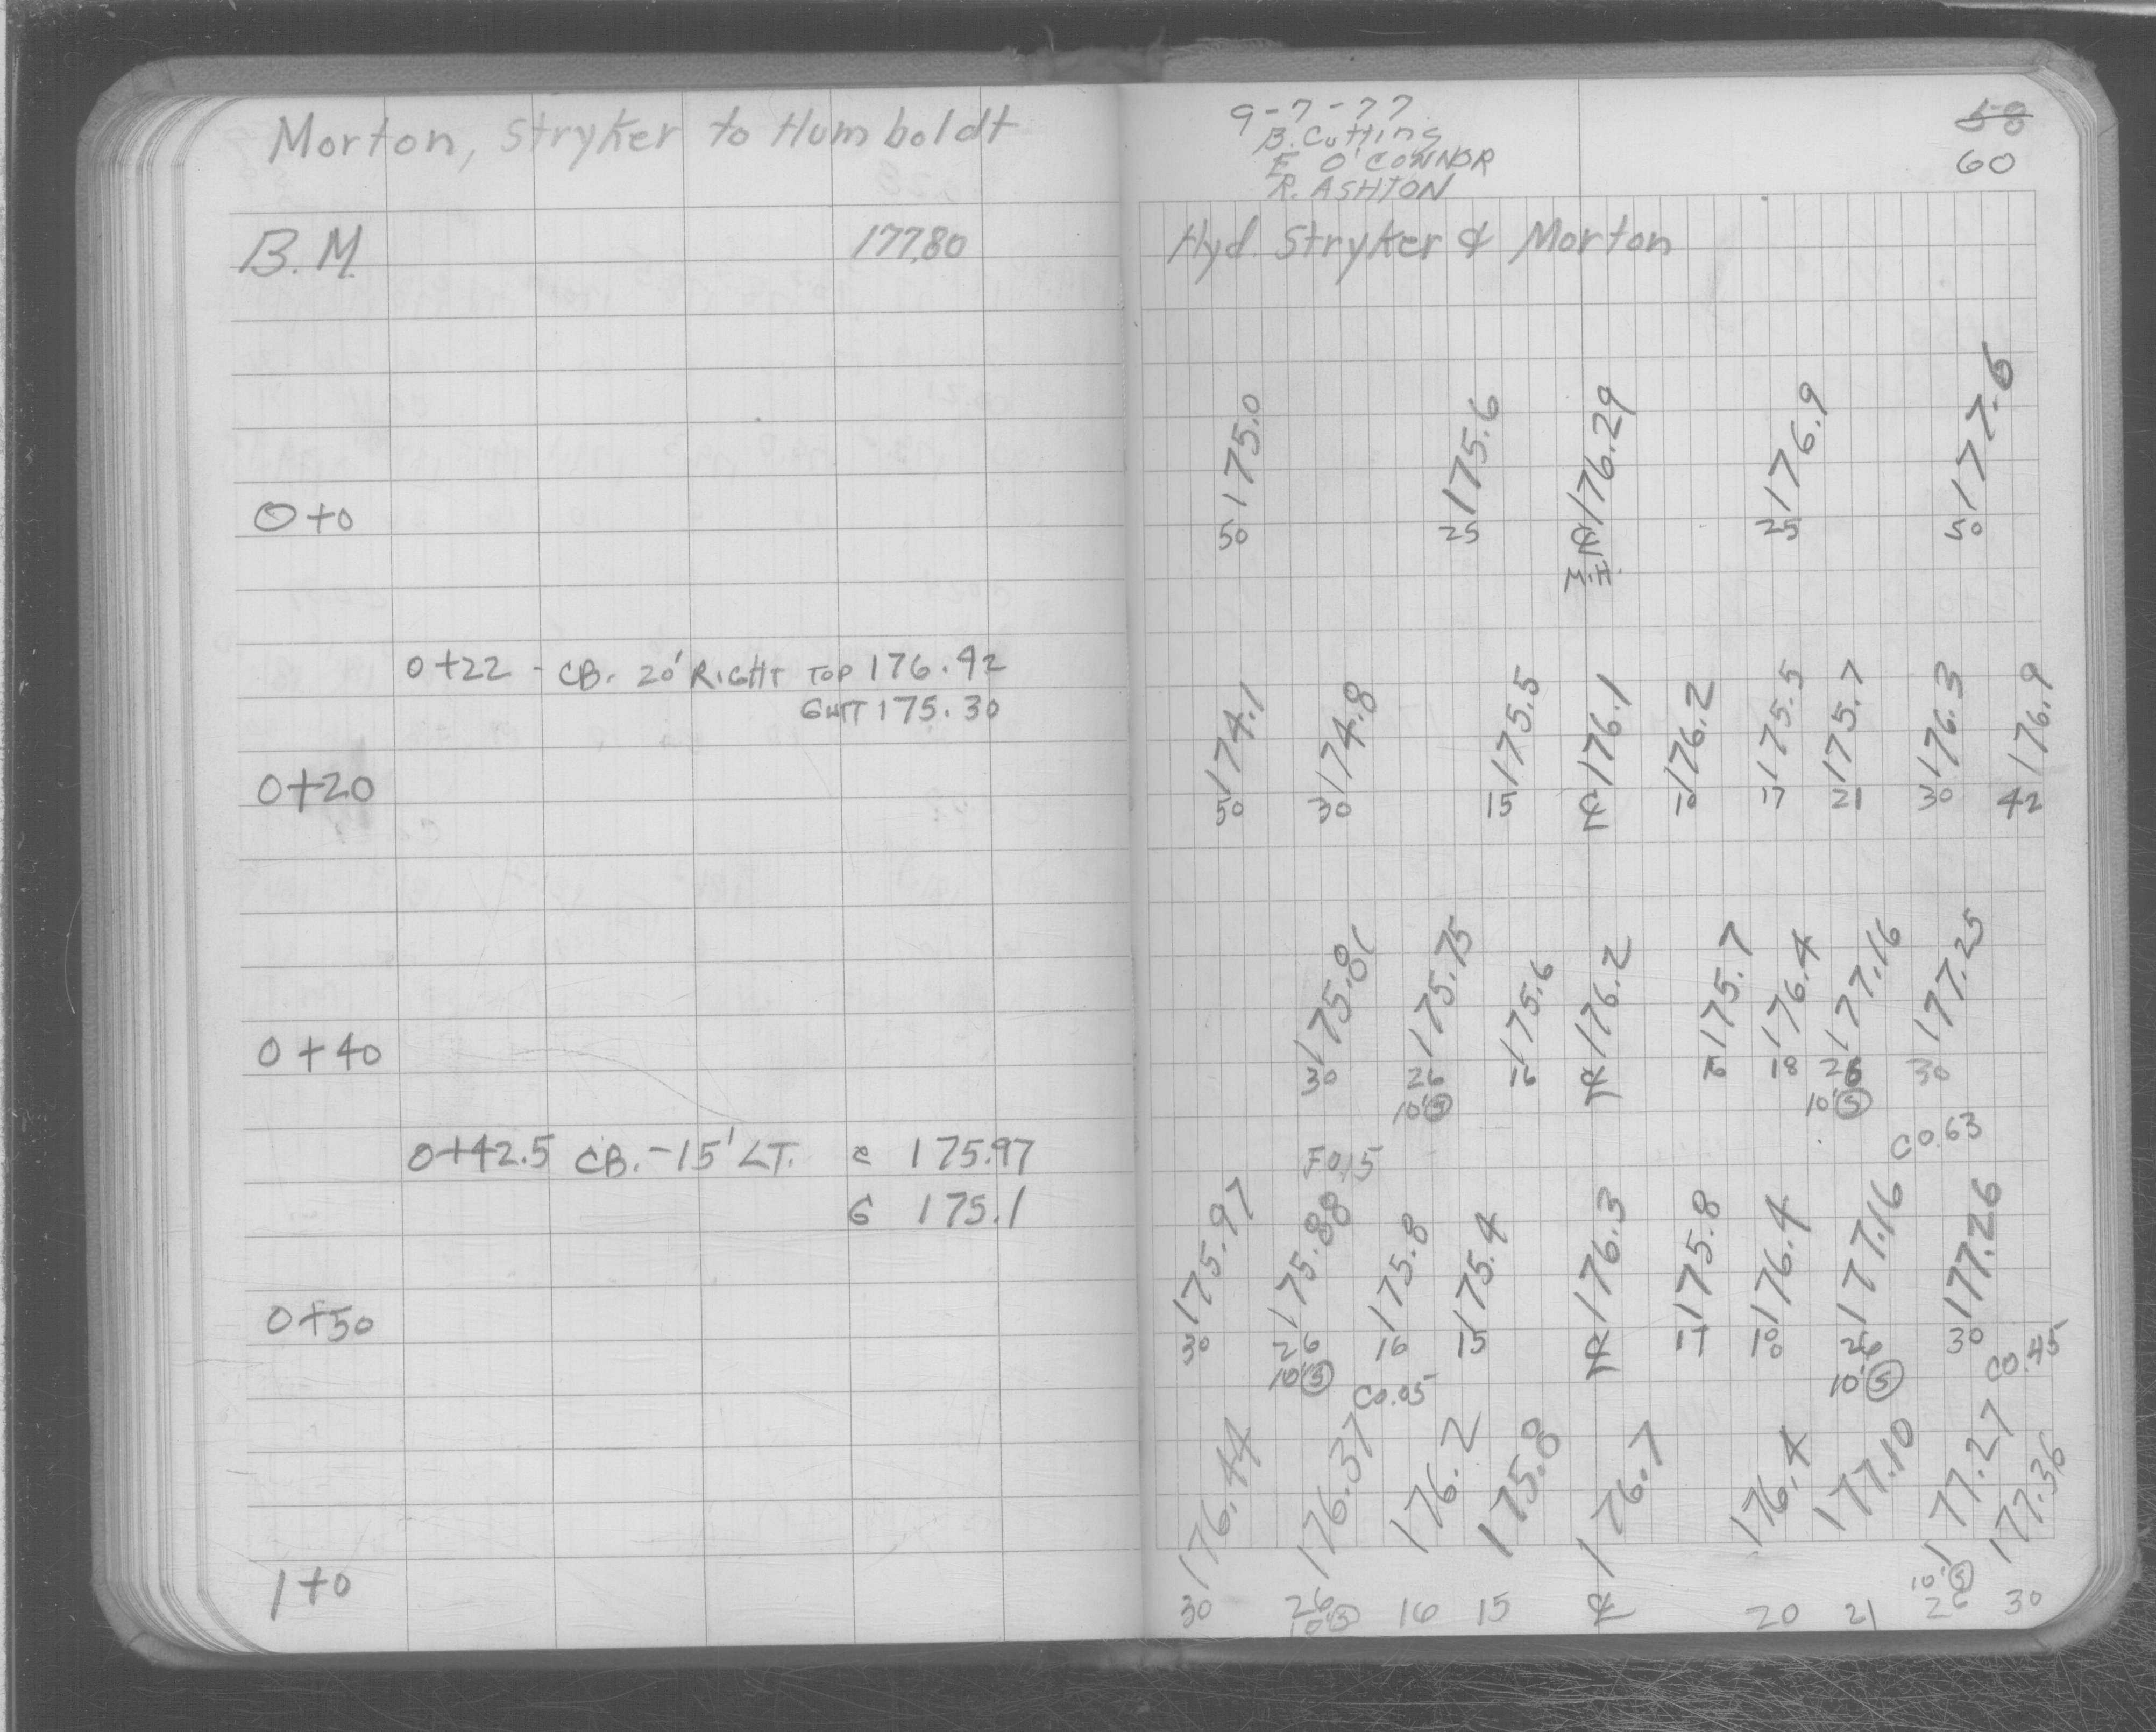 Morton, Stryker to Humboldt
B.M. 177.80
0+0
0+22 - CB. 20' RIGHT TOP 176.42
GUTT 175.30
0+20
0+40
0+42.5 CB. -15' LT. c 175.97
G 175.1
0+50
1+0
9-7-77
B. Cutting
E. O'CONNOR
R. ASHTON
58
60
Hyd. Stryker & Morton
175.0 175.6 176.29 176.9 177.6
50 25 ℄ 25 50
M.H.
174.1 174.8 175.5 176.1 176.2 175.5 175.7 176.3 176.9
50 30 15 ℄ 10 17 21 30 42
175.81 175.75 175.6 176.2 175.7 176.4 177.16 177.25
30 26 16 ℄ 16 18 26 30
10'Ⓢ 10'Ⓢ
F0.15 C0.63
175.97 175.88 175.8 175.4 176.3 175.8 176.4 177.16 177.26
30 26 16 15 ℄ 17 18 26 30
10'Ⓢ 10'Ⓢ
C0.05 C0.45
176.44 176.37 176.2 175.8 176.7 176.4 177.10 177.27 177.36
30 26 16 15 ℄ 20 21 26 30
10'Ⓢ 10'Ⓢ